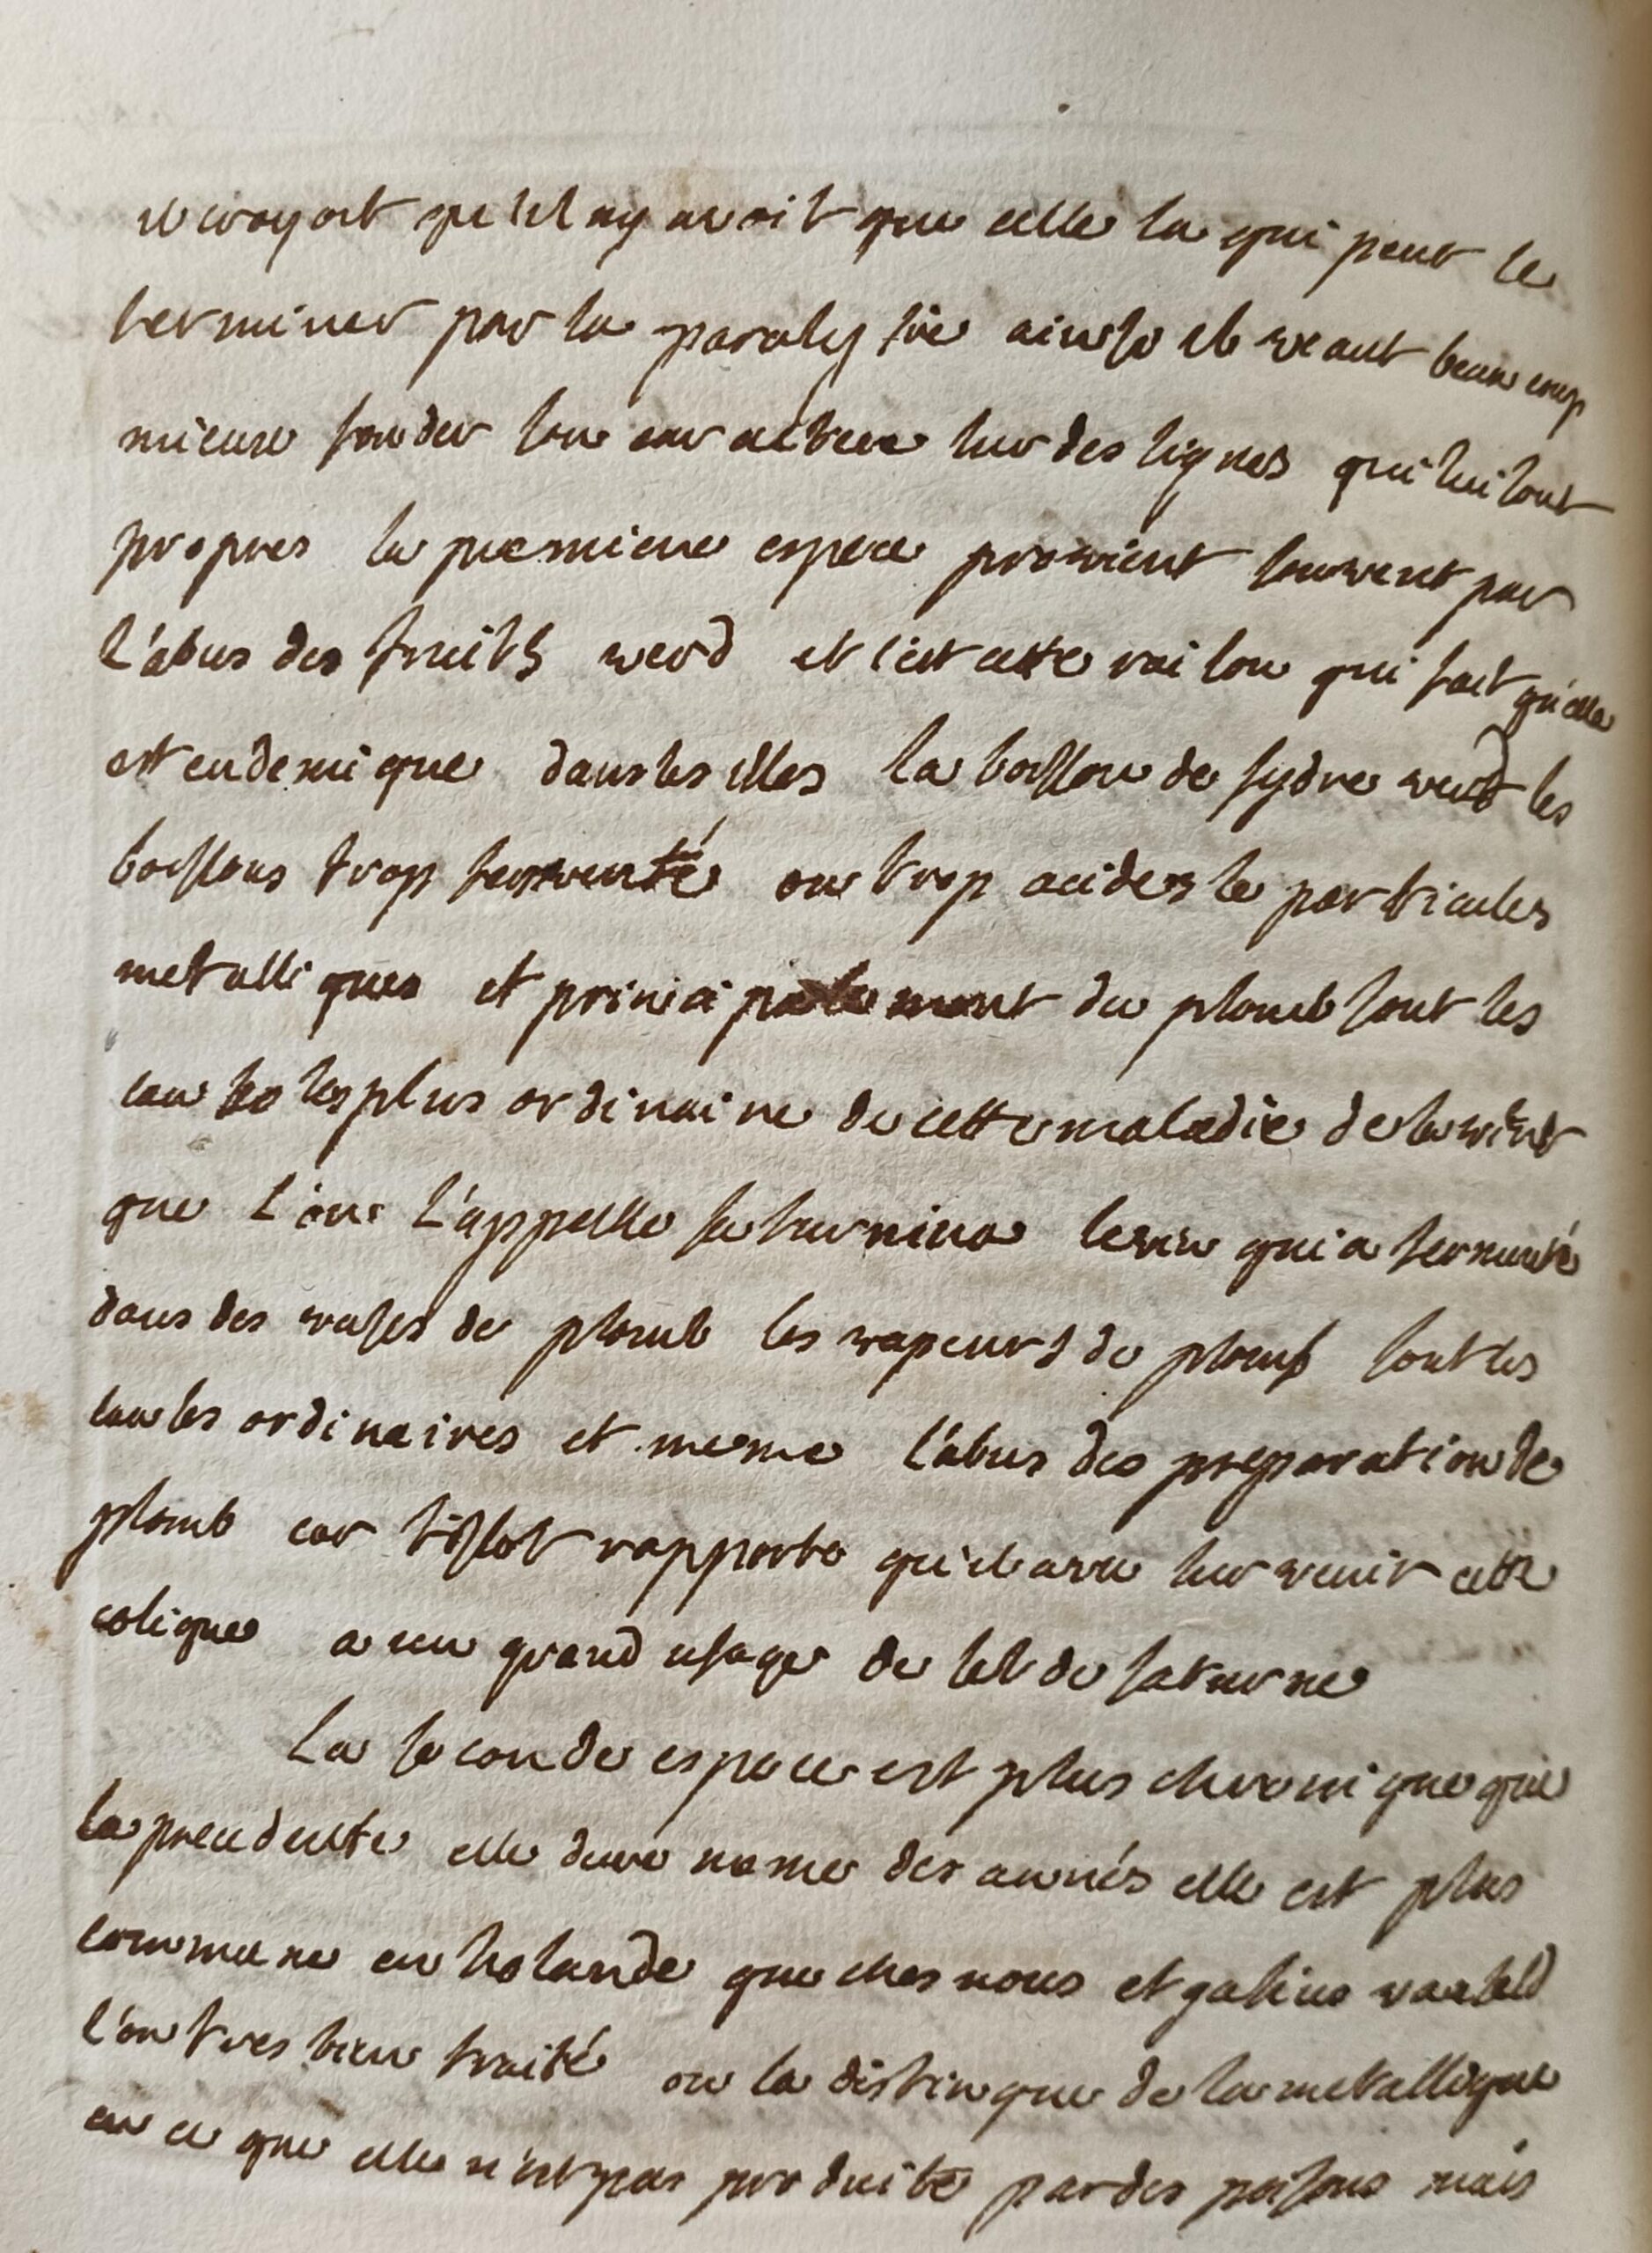 il croyoit qu'il n'y avoit que celle la qui peut se
terminer par la paralysie ainsi il veaut beaucoup
mieux fonder son caractere sur des signes qui lui sont
propres la premiere espece provient souvent par
l'abus des fruits verd et c'est cette raison qui fait qu'elle
est endemique dans les illes la boisson de sydre verd les
boissons trop fermenté ou trop acides le particules
metalliques et principalement du plomb sont les
causes les plus ordinaire de cette maladie de la vient
que l'on l'appelle saturnina le vin qui a fermenté
dans des vases de plomb les vapeurs de plomb sont les
causes ordinaires et meme l'abus des preparation de
plomb car tissot rapporte qu'il a vu survenir cette
colique a un grand usage de sel de saturne
La seconde espece est plus chronique que
la precedente elle dure meme des annés elle est plus
commune en holande que ches nous et
l'on tres bien traité on la distingue de la metallique
en ce que elle n'est pas produite par des poisons mais